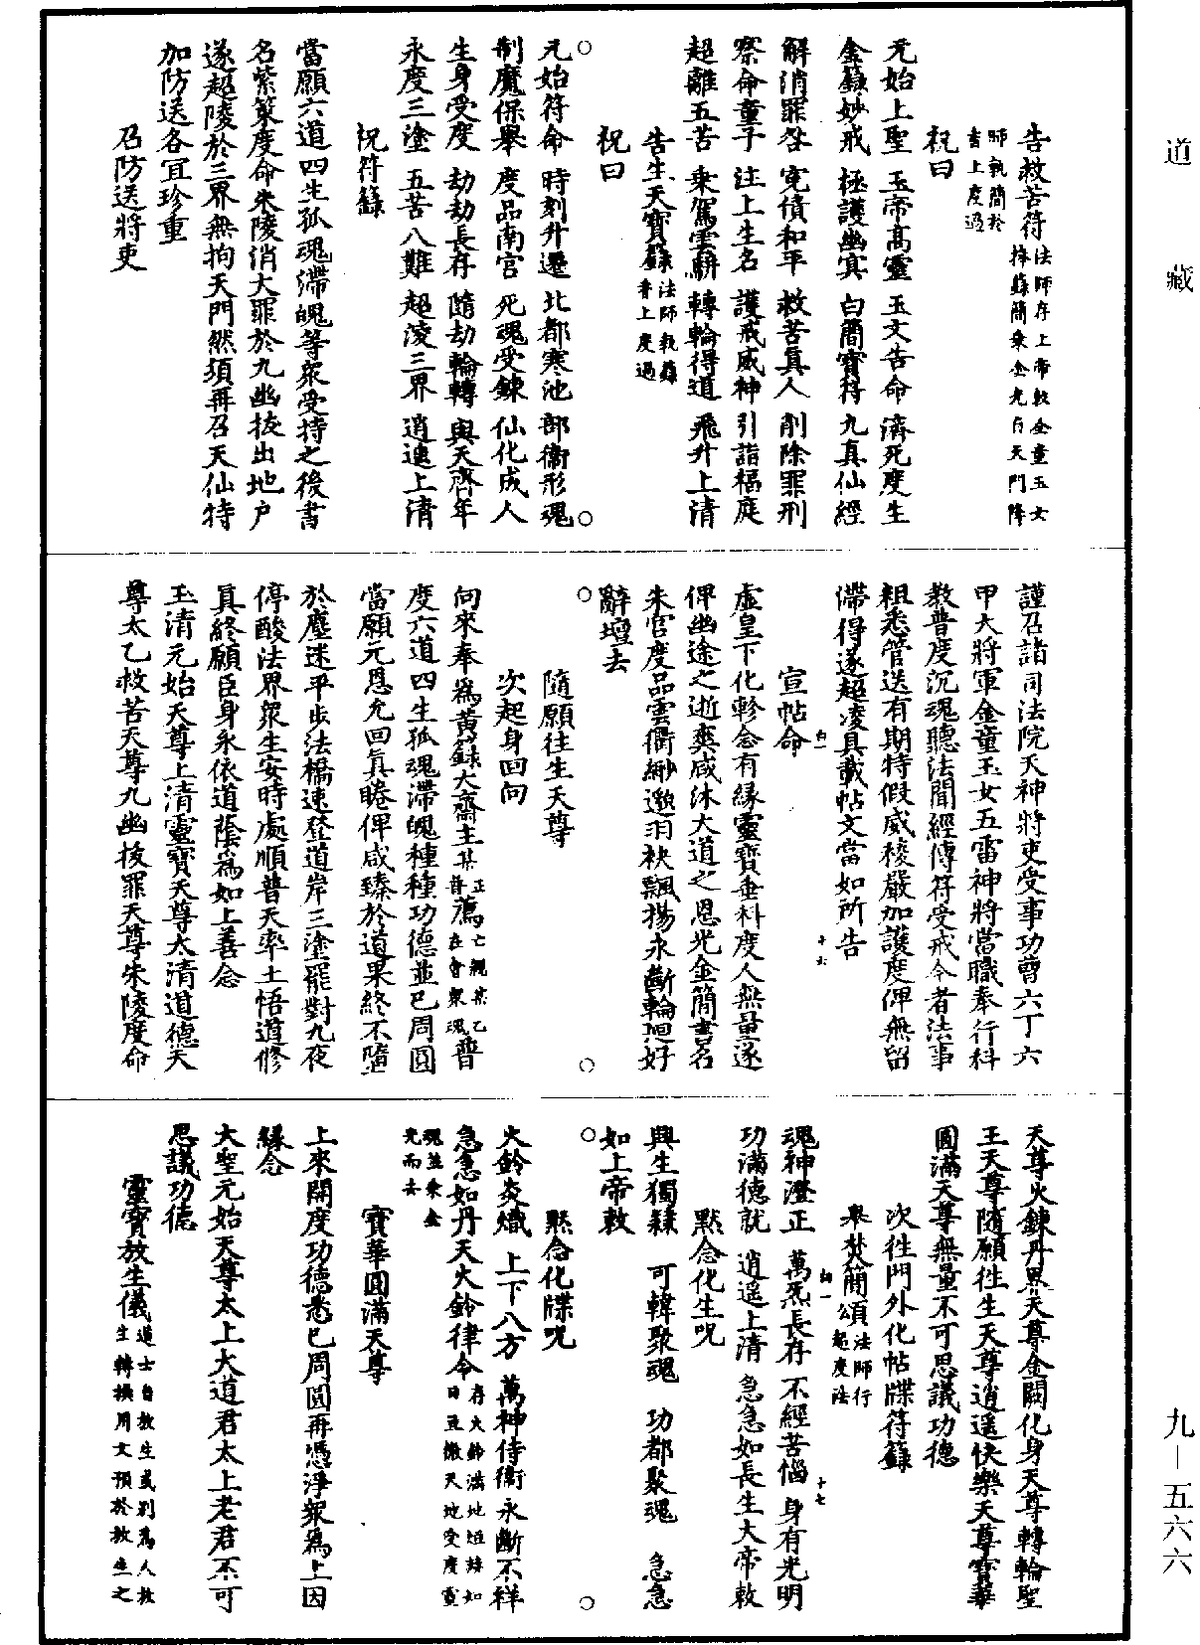 道藏
告救苦符法師存上帝敕金童玉女捧籙簡乘金光自天門降
師執簡於香上度過
祝曰
元始上聖　玉帝高靈　玉文告命　濟死度生
金籙妙戒　拯護幽冥　白簡寶符　九真仙經
解消罪咎　寃債和平　救苦眞人　削除罪刑
察命童子　注上生名　護戒威神　引詣福庭
超離五苦　乘駕雲軿　轉輪得道　飛升上清
告生天寶籙法師執籙香上度過
祝曰
元始符命　時刻升遷　北都寒池　部衞形魂
制魔保舉　度品南宮　死魂受鍊　仙化成人
生身受度　劫劫長存　隨劫輪轉　與天齊年
永度三塗　五苦八難　超凌三界　逍遥上清
祝符籙
當願六道四生孤魂滯魄等衆受持之後書
名紫策度命朱陵消大罪於九幽抜出地户
遂超陵於三界無拘天門然須再召天仙特
加防送各宜珍重
召防送將吏
謹召諸司法院天神將吏受事功曹六丁六
甲大將軍金童玉女五雷神將當職奉行科
教普度沉魂聽法聞經傳符受戒今者法事
粗悉管送有期特假威稜嚴加護度俾無留
滯得遂超凌具載帖文當如所告
宣帖命
虛皇下化軫念有緣靈寶垂科度人無量遂
俾幽途之逝爽咸沐大道之恩光金簡書名
朱宮度品雲衢緲邈羽袂飄揚永斷輪迴好
辭壇去
隨願往生天尊
次起身回向
向來奉爲黄籙大齋主某正薦亡親某乙普薦在會衆魂普
度六道四生孤魂滯魄種種功德並已周圓
當願元恩允回眞睠俾咸臻於道果終不墮
於塵迷平步法橋速登道岸三塗罷對九夜
停酸法界衆生安時處順普天率土悟道修
眞終願臣身永依道蔭爲如上善念
玉清元始天尊上清靈寶天尊太清道德天
尊太乙救苦天尊九幽拔罪天尊朱陵度命
天尊火鍊丹界天尊金闕化身天尊轉輪聖
王天尊隨願往生天尊逍遥快樂天尊寶華
圓滿天尊無量不可思議功德
次往門外化帖牒符籙
舉焚簡頌法師行起度法
魂神澄正　萬炁長存　不經苦惱　身有光明
功滿德就　逍遥上清　急急如長生大帝敕
黙念化生呪
興生獨隸　可韓聚魂　功都聚魂　急急
如上帝敕
黙念化牒呪
火鈴炎熾　上下八方　萬神侍衞永斷不祥
急急如丹天火鈴律令存火鈴滿地
魂並乘金光而去
寶華圓滿天尊
上來開度功德悉已周圓再憑淨衆爲上因
緣念
大聖元始天尊太上大道君太上老君不可
思議功德
靈寶放生儀道士自放生或别爲人放生轉換用文預於放生之
九—五六六